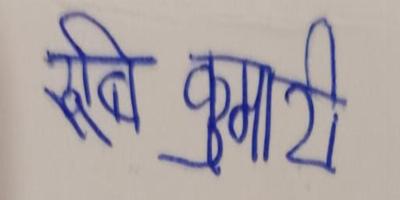 रूबि कुमारी